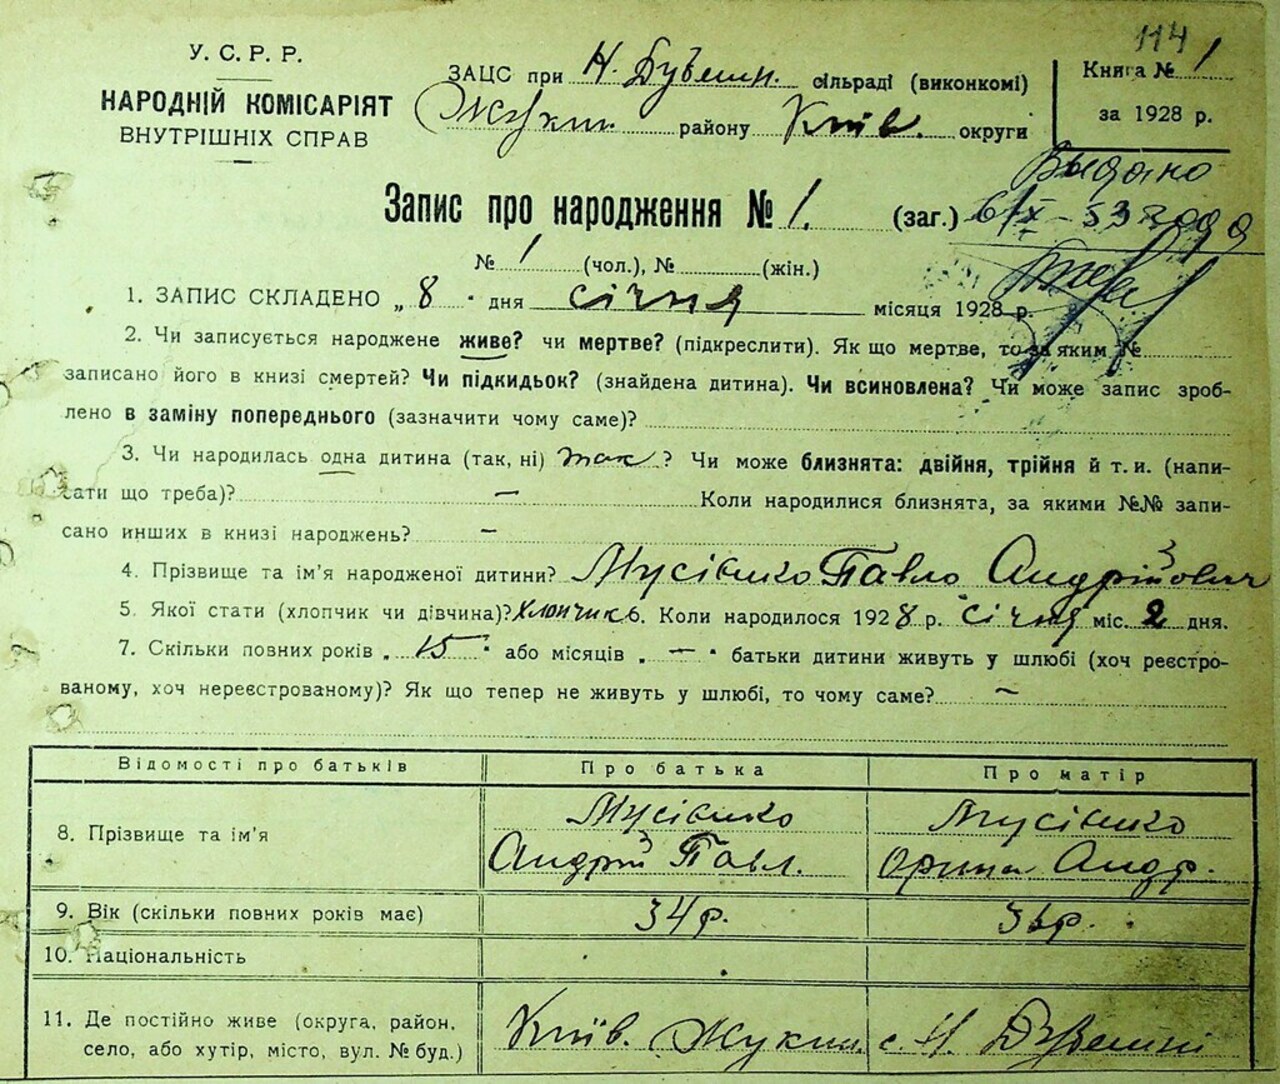 114
У. С. Р. Р.
НАРОДНІЙ КОМІСАРІЯТ
ВНУТРІШНІХ СПРАВ
ЗАЦС при Н. Дубешн. сільраді (виконкомі)
Жукин району Київ. округи
Книга № 1
за 1928 р.
Выдано
Запис про народження № 1. (заг.)
№ 1 (чол.), № (жін.)
1. ЗАПИС СКЛАДЕНО „ 8 " дня січня місяця 1928 р.
2. Чи записується народжене живе? чи мертве? (підкреслити). Як що мертве, то за яким №
записано його в книзі смертей? Чи підкидьок? (знайдена дитина). Чи всиновлена? Чи може запис зроб-
лено в заміну попереднього (зазначити чому саме)?
3. Чи народилась одна дитина (так, ні) так ? Чи може близнята: двійня, трійня й т. и. (напи-
сати що треба)? — Коли народилися близнята, за якими №№ запи-
сано инших в книзі народжень? —
4. Прізвище та ім'я народженої дитини? Мусієнко Павло Андрійович
5. Якої стати (хлопчик чи дівчина)? Хлопчик 6. Коли народилося 1928 р. січня міс. 2 дня.
7. Скільки повних років „ 15 " або місяців „ — " батьки дитини живуть у шлюбі (хоч реєстро-
ваному, хоч нереєстрованому)? Як що тепер не живуть у шлюбі, то чому саме? —
Відомості про батьків Про батька Про матір
8. Прізвище та ім'я Мусієнко Андрій Павл. Мусієнко Орина Андр.
9. Вік (скільки повних років має) 34 р. 36 р.
10. Національність
11. Де постійно живе (округа, район,
село, або хутір, місто, вул. № буд.) Київ. Жукин. с. Н. Дубешні